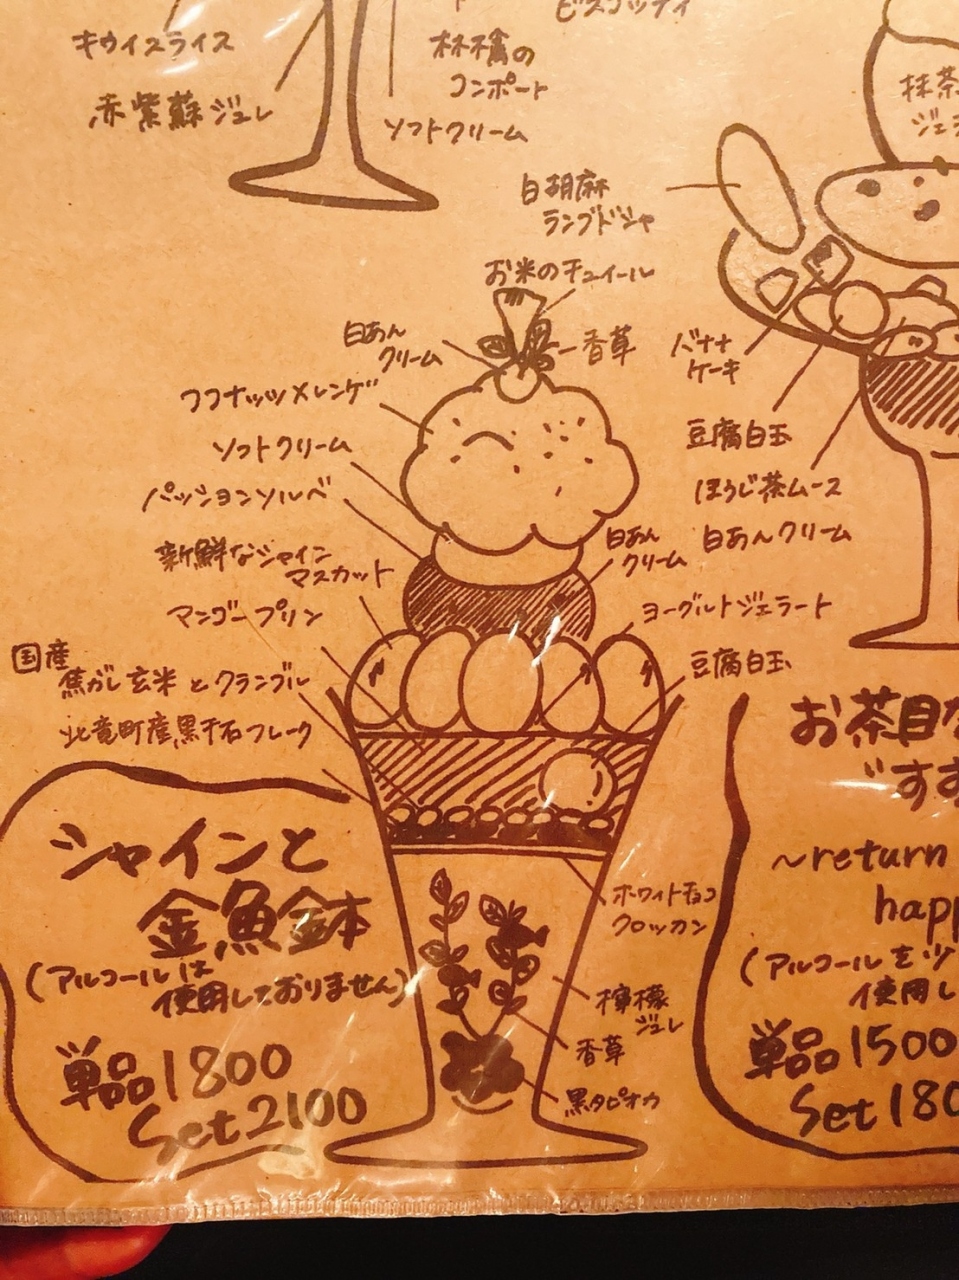 キウイスライス
赤紫蘇ジュレ
林檎の
コンポート
ソフトクリーム
ビスコッティ
抹茶
白胡麻
ラングドシャ
お米のチュイール
白あん
クリーム
香草
ココナッツメレンゲ
ソフトクリーム
パッションソルベ
新鮮なシャイン
マスカット
マンゴープリン
国産
焦がし玄米とクランブル
北竜町産黒千石フレーク
バナナ
ケーキ
豆腐白玉
ほうじ茶ムース
白あんクリーム
白あん
クリーム
ヨーグルトジェラート
豆腐白玉
ホワイトチョコ
クロッカン
檸檬
ジュレ
香草
黒タピオカ
シャインと
金魚鉢
(アルコールは
使用しておりません)
単品1800
Set2100
お茶目な
~return
(アルコールを少
使用し
単品1500